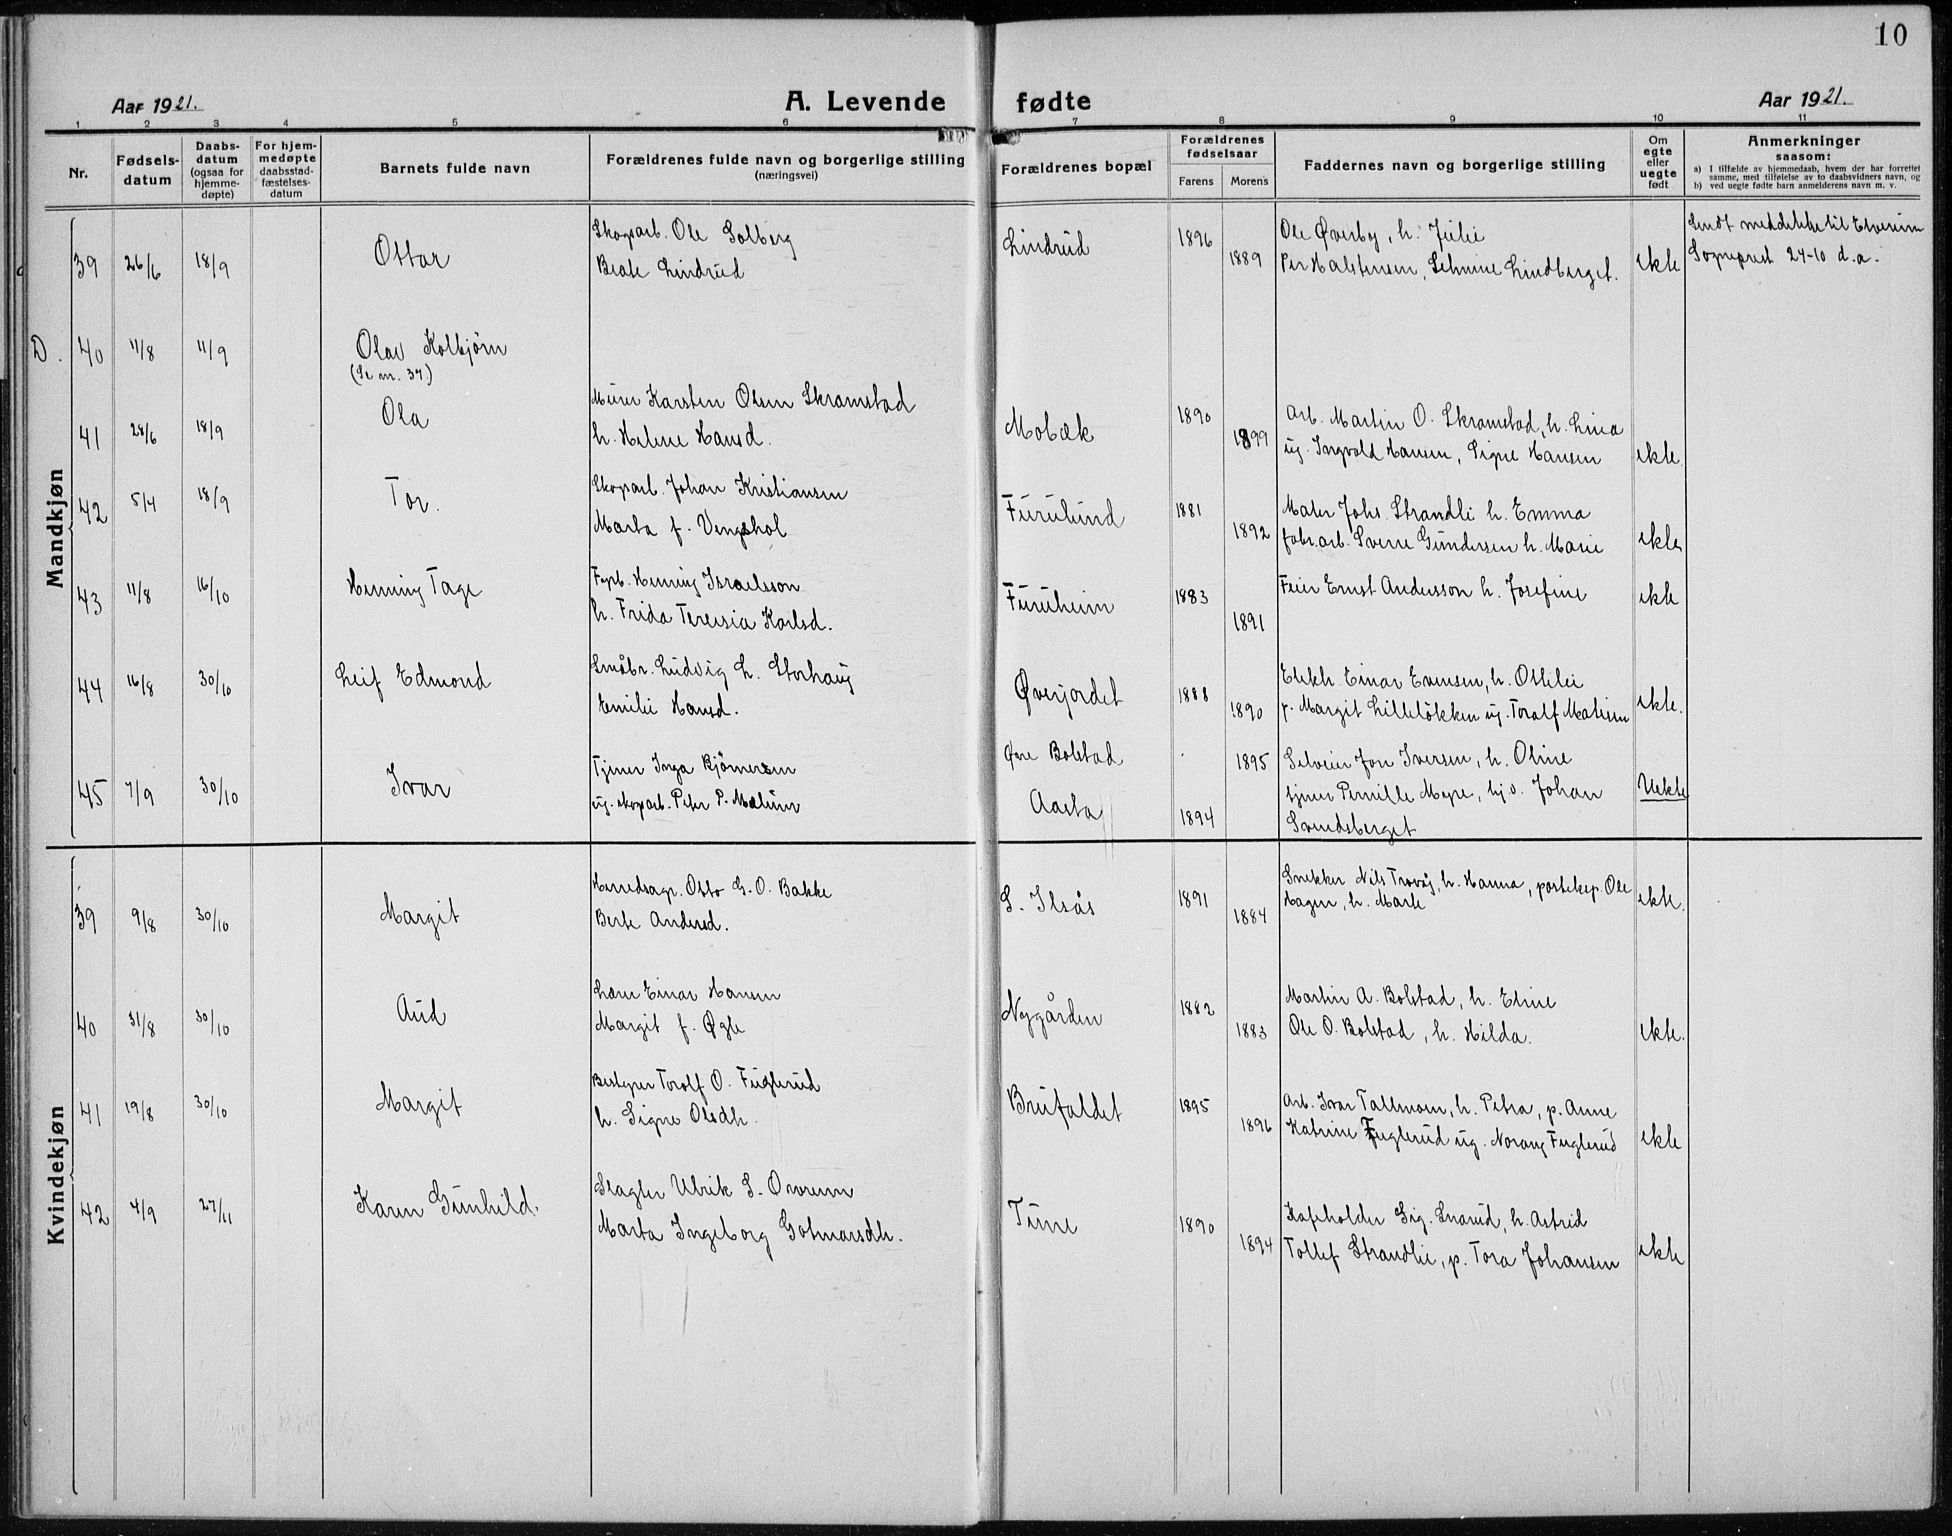 10
Aar 1921.
A. Levende fødte
Aar 1921.
1 2 3 4 5 6 7 8 9 10 11
Nr.
Fødsels-datum
Daabs-datum (ogsaa for hjemme-døpte)
For hjem-medøpte daabsstad-fæstelses-datum
Barnets fulde navn
Forældrenes fulde navn og borgerlige stilling (næringsvei)
Forældrenes bopæl
Forældrenes fødselsaar
Farens Morens
Faddernes navn og borgerlige stilling
Om egte eller uegte født
Anmerkninger saasom:
a) I tilfælde av hjemmedaab, hvem der har forrettet samme, med tilføielse av to daabsvidners navn, og
b) ved uegte fødte barn anmelderens navn m. v.
Mandkjøn
39 26/6 18/9 Ottar
Skogsarb. Ole Solberg
Beate Lindrud
Lindrud 1896 1889
Ole Øverby, h. Julie
Per Halstensen, Lindberget.
ekte
Sendt meddelelse til Elverum
Sogneprest 24-10 d.a.
D. 40 11/8 11/9 Olav Kolbjørn
(Se nr. 37.)
41 28/6 18/9 Ola
Murer Karsten Olsen Skramstad
h. Helene Hansd.
Mobæk 1890 1899
Arb. Martin O. Skramstad, h. Lina
ug. Ingvald Hansen, Signe Hansen
ekte.
42 5/4 18/9 Tor.
Skogsarb. Johan Kristiansen
Marta f. Vengshol
Furulund 1881 1892
Maler Johs. Strandli h. Emma
fabr.arb. Sverre Gundersen h. Marie
ekte
43 11/8 16/10 Henning Tage
Henning Israelsson
h. Frida Teresia Karlsd.
Furuheim 1883 1891
Feier Ernst Andersson h. Josefine
ekte
44 16/8 30/10 Leif Edmond
Småbr. Ludvig L. Storhaug
Emilie Hansd.
Øverjordet 1888 1890
Einar Evensen, h. Ottilie
p. Margit Lilleløkken ug. Toralf
ekte.
45 7/9 30/10 Ivar
Tjener Inga Bjørnersen
ug. skogsarb. Peter P. Mælum
Øvre Bolstad
Aasta
1895 1894
Selveier Jon Iversen, h. Oline
tjener Pernille Myre, Johan
Svendsberget
Uekte
Kvindekjøn
39 9/8 30/10 Margit
Herredsagr. Otto G. O. Bakke
Berte Andersd.
S. Ilsås 1891 1884
Snekker Nils h. Hanna, posteksp. Ole
Hagen, h. Marte
ekte.
40 31/8 30/10 Aud
Einar Hansen
Margit f. Øgle
Nygården 1882 1883
Martin A. Bolstad, h. Eline
Ole O. Bolstad, h. Hilda.
ekte.
41 19/8 30/10 Margit
Bestyrer Torolf O. Fuglerud
h. Signe Olsdh.
Brufaldet 1895 1896
Arb. Ivar Tallmoen, h. Petra, p. Anne
Katrine Fuglerud ug. Fuglerud
ekte
42 4/9 27/11 Karen Gunhild.
Slagter Ulrik S.
Marta Ingeborg Gotmarsdh.
Tune 1890 1894
Kafeholder Sig. Snarud, h. Astrid
Tollef Strandlie, p. Tora Johansen
ekte